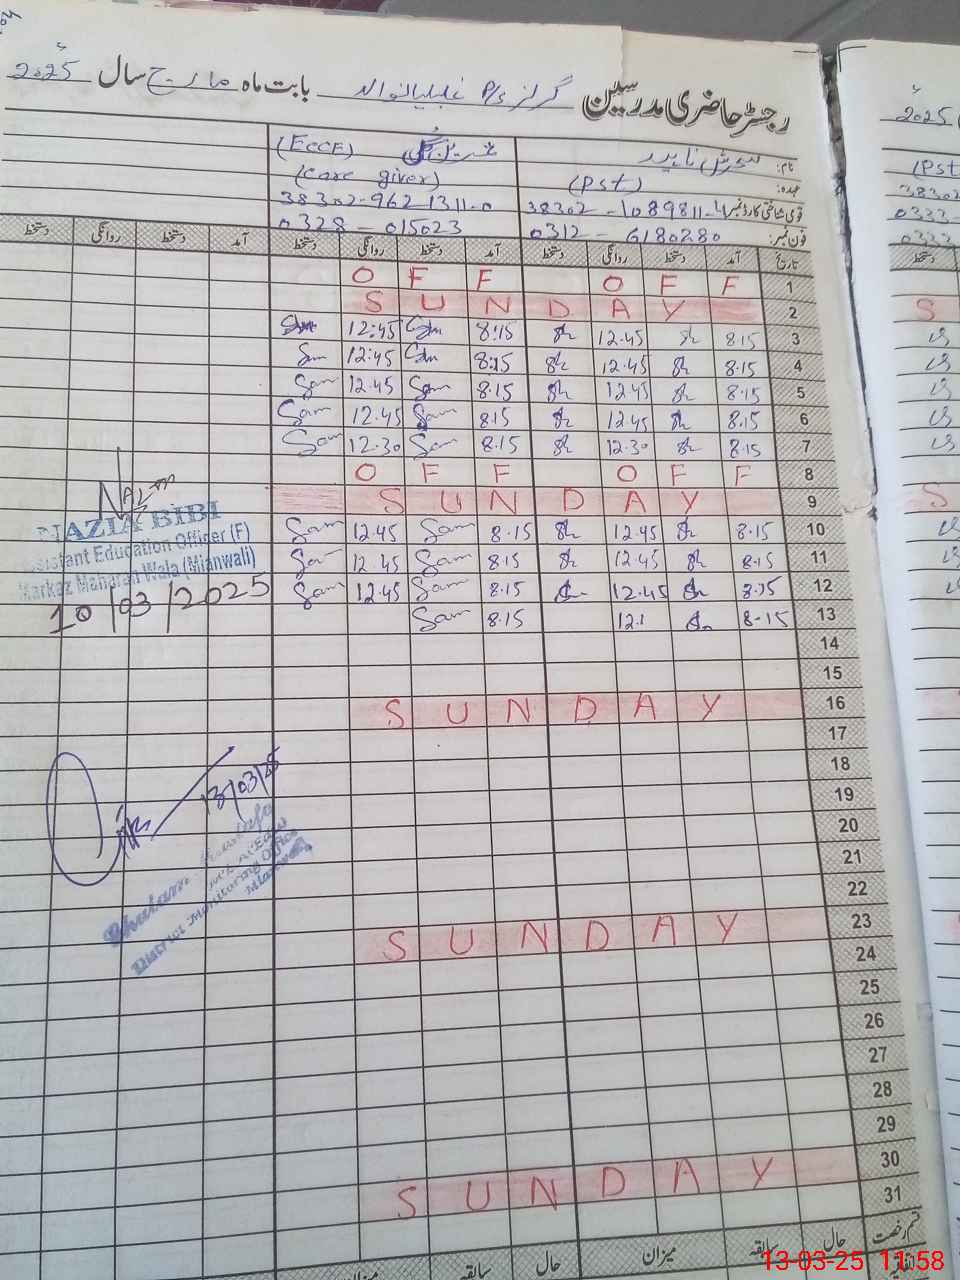 رجسٹر حاضری مدرسین گرلز P/S بابت ماہ مارچ سال 2025ء
نام:
(ECCF)
عہدہ: (Pst) (Care giver)
قومی شناختی کارڈ نمبر: 38302-1089811-4 38302-9621311-0
فون نمبر: 0312-6180280 0328-015023
تاریخ آمد دستخط روانگی دستخط آمد دستخط روانگی دستخط آمد دستخط روانگی دستخط
1 O F F O F F
2 S U N D A Y
3 8.15 12.45 8:15 12:45
4 8.15 12.45 8:15 12:45
5 8.15 12.45 8.15 Sam 12.45 Sam
6 8.15 12.45 8.15 Sam 12.45 Sam
7 8.15 12.30 8.15 Sam 12.30 Sam
8 O F F O F F
9 S U N D A Y
10 8.15 12.45 8.15 Sam 12.45 Sam
11 8.15 12.45 8.15 Sam 12.45 Sam
12 8.15 12.45 8.15 Sam 12.45 Sam
13 8-15 12.1 8.15 Sam
14
15
16 S U N D A Y
17
18
19
20
21
22
23 S U N D A Y
24
25
26
27
28
29
30 S U N D A Y
31
قسم رخصت حال سابقہ میزان حال سابقہ میزان
NAZIA BIBI
Assistant Education Officer (F)
Markaz Maharan Wala (Mianwali)
10/03/2025
13/03/25
Ghulam Mustafa
District Monitoring Officer
Mianwali
2025ء
(Pst)
38302
0333
0333
دستخط
S
S
13-03-25 11:58